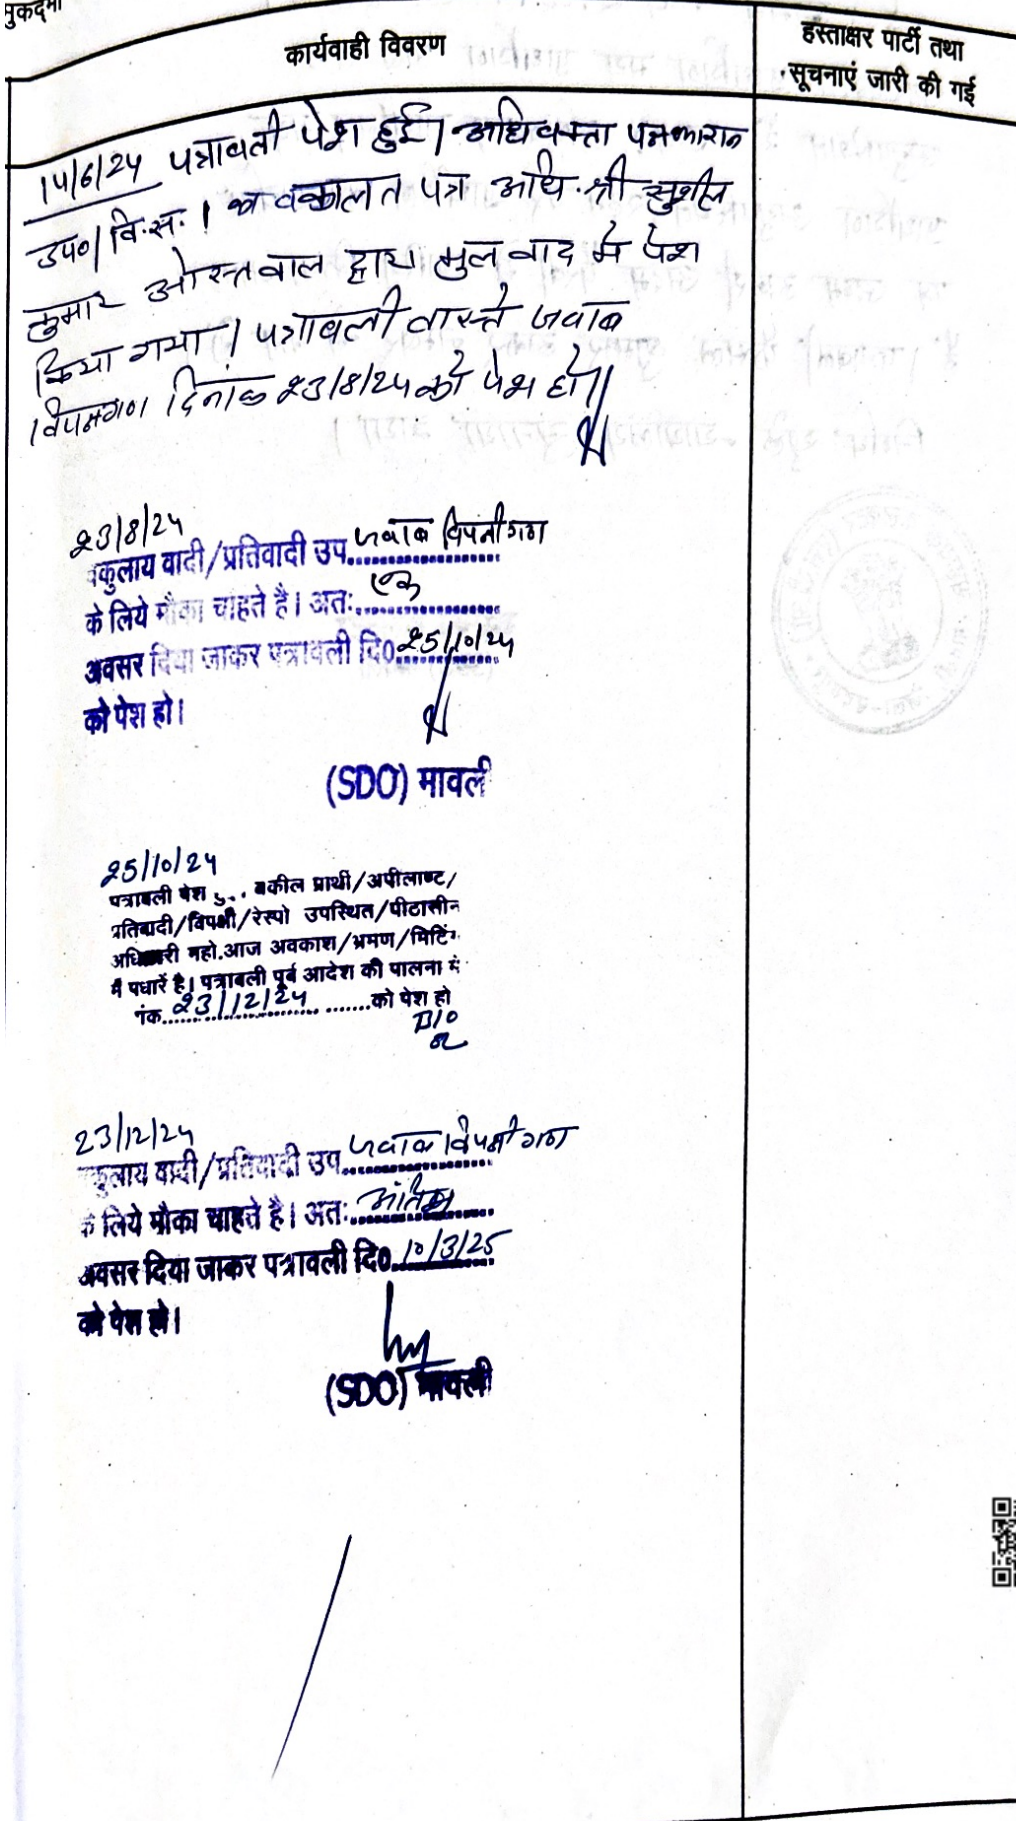 मुकद्दमा
कार्यवाही विवरण
हस्ताक्षर पार्टी तथा
सूचनाएं जारी की गई
14/6/24 पत्रावली पेश हुई। अधिवक्ता पक्षकारान
उप०। वि.सं.। वकालत पत्र अधि. श्री सुशील
कुमार ओस्तवाल द्वारा मुल वाद मे पेश
किया गया। पत्रावली वास्ते जवाब
विपक्षीगण दिनांक 23/8/24 को पेश हो।
23/8/24
वकुलाय वादी/प्रतिवादी उप. जवाब विपक्षीगण
के लिये मौका चाहते है। अतः एक
अवसर दिया जाकर पत्रावली दि0 25/10/24
को पेश हो।
(SDO) मावली
25/10/24
पत्रावली पेश हु... वकील प्रार्थी/अपीलाण्ट/
प्रतिवादी/विपक्षी/रेस्पो उपस्थित/पीठासीन
अधिकारी महो.आज अवकाश/भ्रमण/मिटिंग
में पधारें है। पत्रावली पूर्व आदेश की पालना में
नांक 23/12/24 को पेश हो
23/12/24
वकुलाय वादी/प्रतिवादी उप. जवाब विपक्षीगण
के लिये मौका चाहते है। अतः अंतिम
अवसर दिया जाकर पत्रावली दि0 10/3/25
को पेश हो।
(SDO) मावली